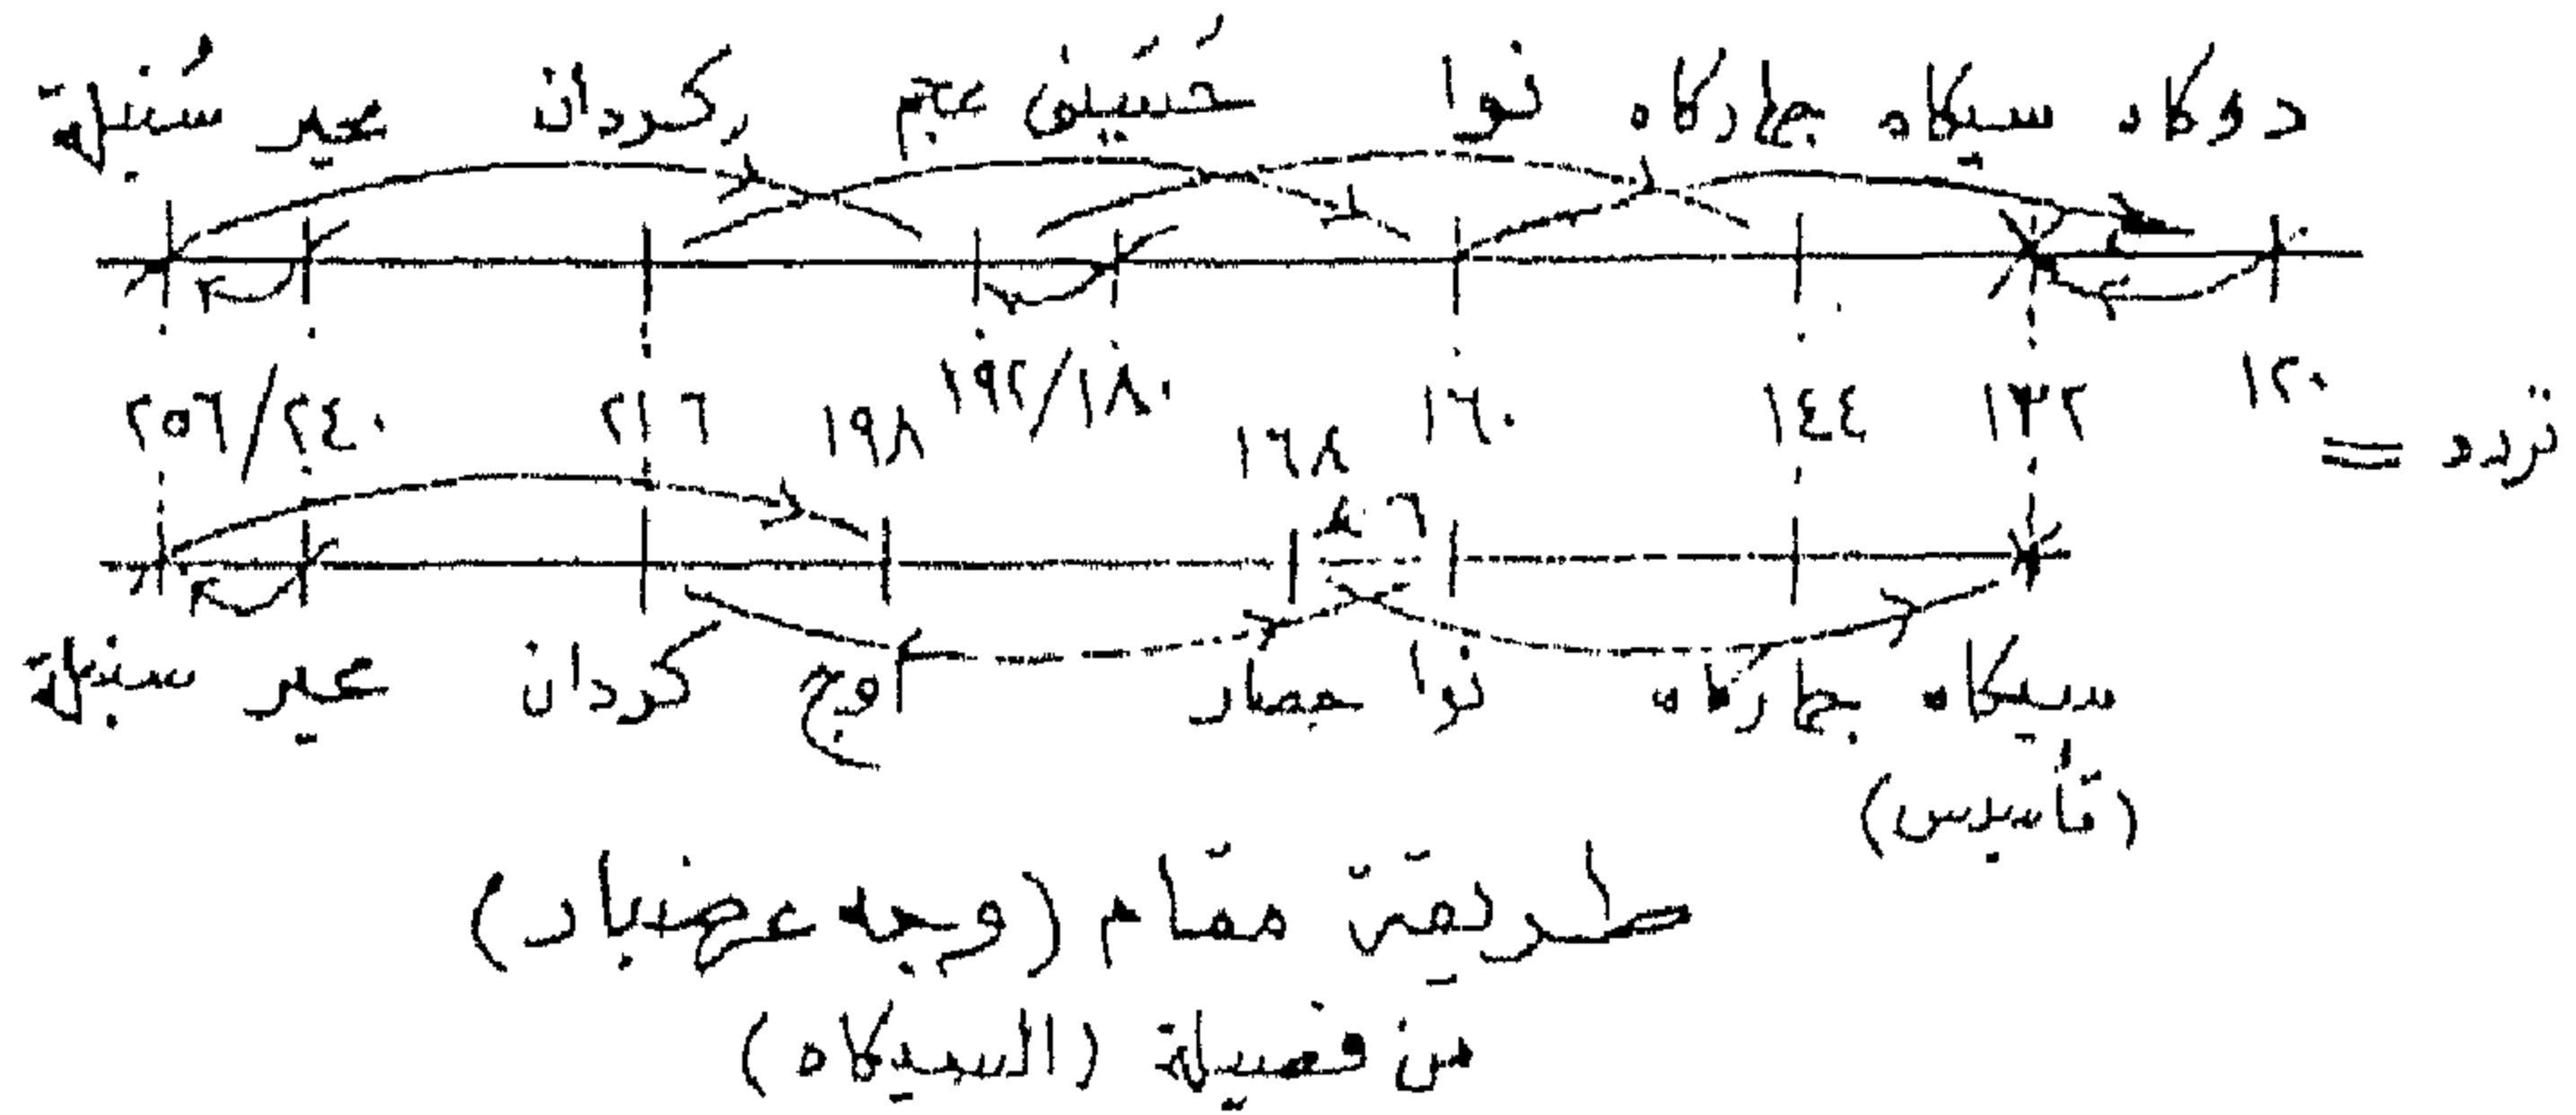 دوكاه سيكاه جهاركاه نوا حُسَيني عجم كردان محير سُنبلة
تردد = ١٢٠ ١٣٢ ١٤٤ ١٦٠ ١٦٨ ١٩٢/١٨٠ ١٩٨ ٢١٦ ٢٥٦/٢٤٠
٨ ٦
سيكاه جهاركاه نوا حصار أوج كردان محير سنبلة
(تأسيس)
طريقة مقام (وجه عرضبار)
من فصيلة (السيكاه)